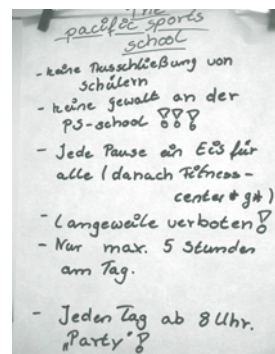 The
pacific sports
school
- keine Ausschließung von
schülern
- keine gewalt an der
PS-school !!!
- Jede Pause ein Eis für
alle (danach Fitness-
center *g*)
- Langeweile verboten!
- Nur max. 5 Stunden
am Tag.
- Jeden Tag ab 8 Uhr.
"Party"!